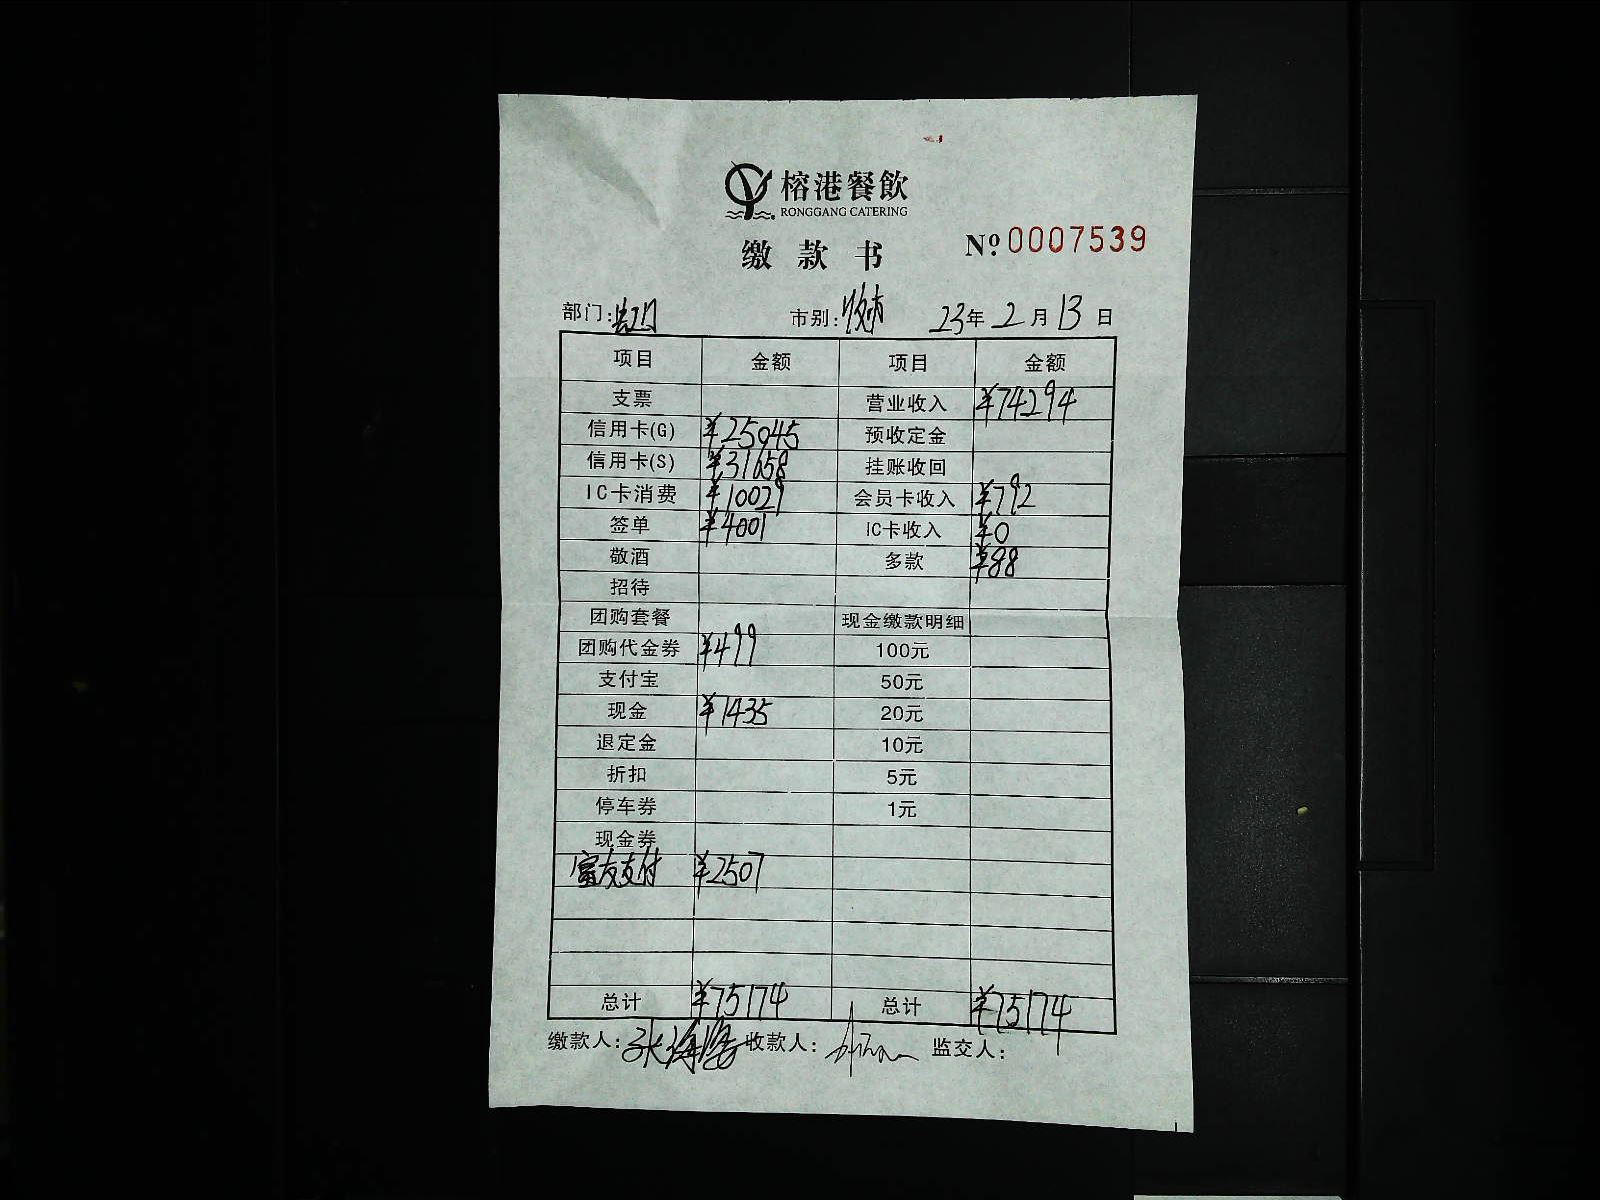 榕港餐飲
RONGGANG CATERING
缴款书
No. 0007539
部门: 市别:晚市 23年2月13日
项目 金额 项目 金额
支票 营业收入 ¥74294
信用卡(G) ¥25045 预收定金
信用卡(S) ¥31658 挂账收回
IC卡消费 ¥10029 会员卡收入 ¥792
签单 ¥4001 IC卡收入 ¥0
敬酒 多款 ¥88
招待
团购套餐 现金缴款明细
团购代金券 ¥499 100元
支付宝 50元
现金 ¥1435 20元
退定金 10元
折扣 5元
停车券 1元
现金券
富友支付 ¥2507
总计 ¥75174 总计 ¥75174
缴款人:张海 收款人: 监交人: